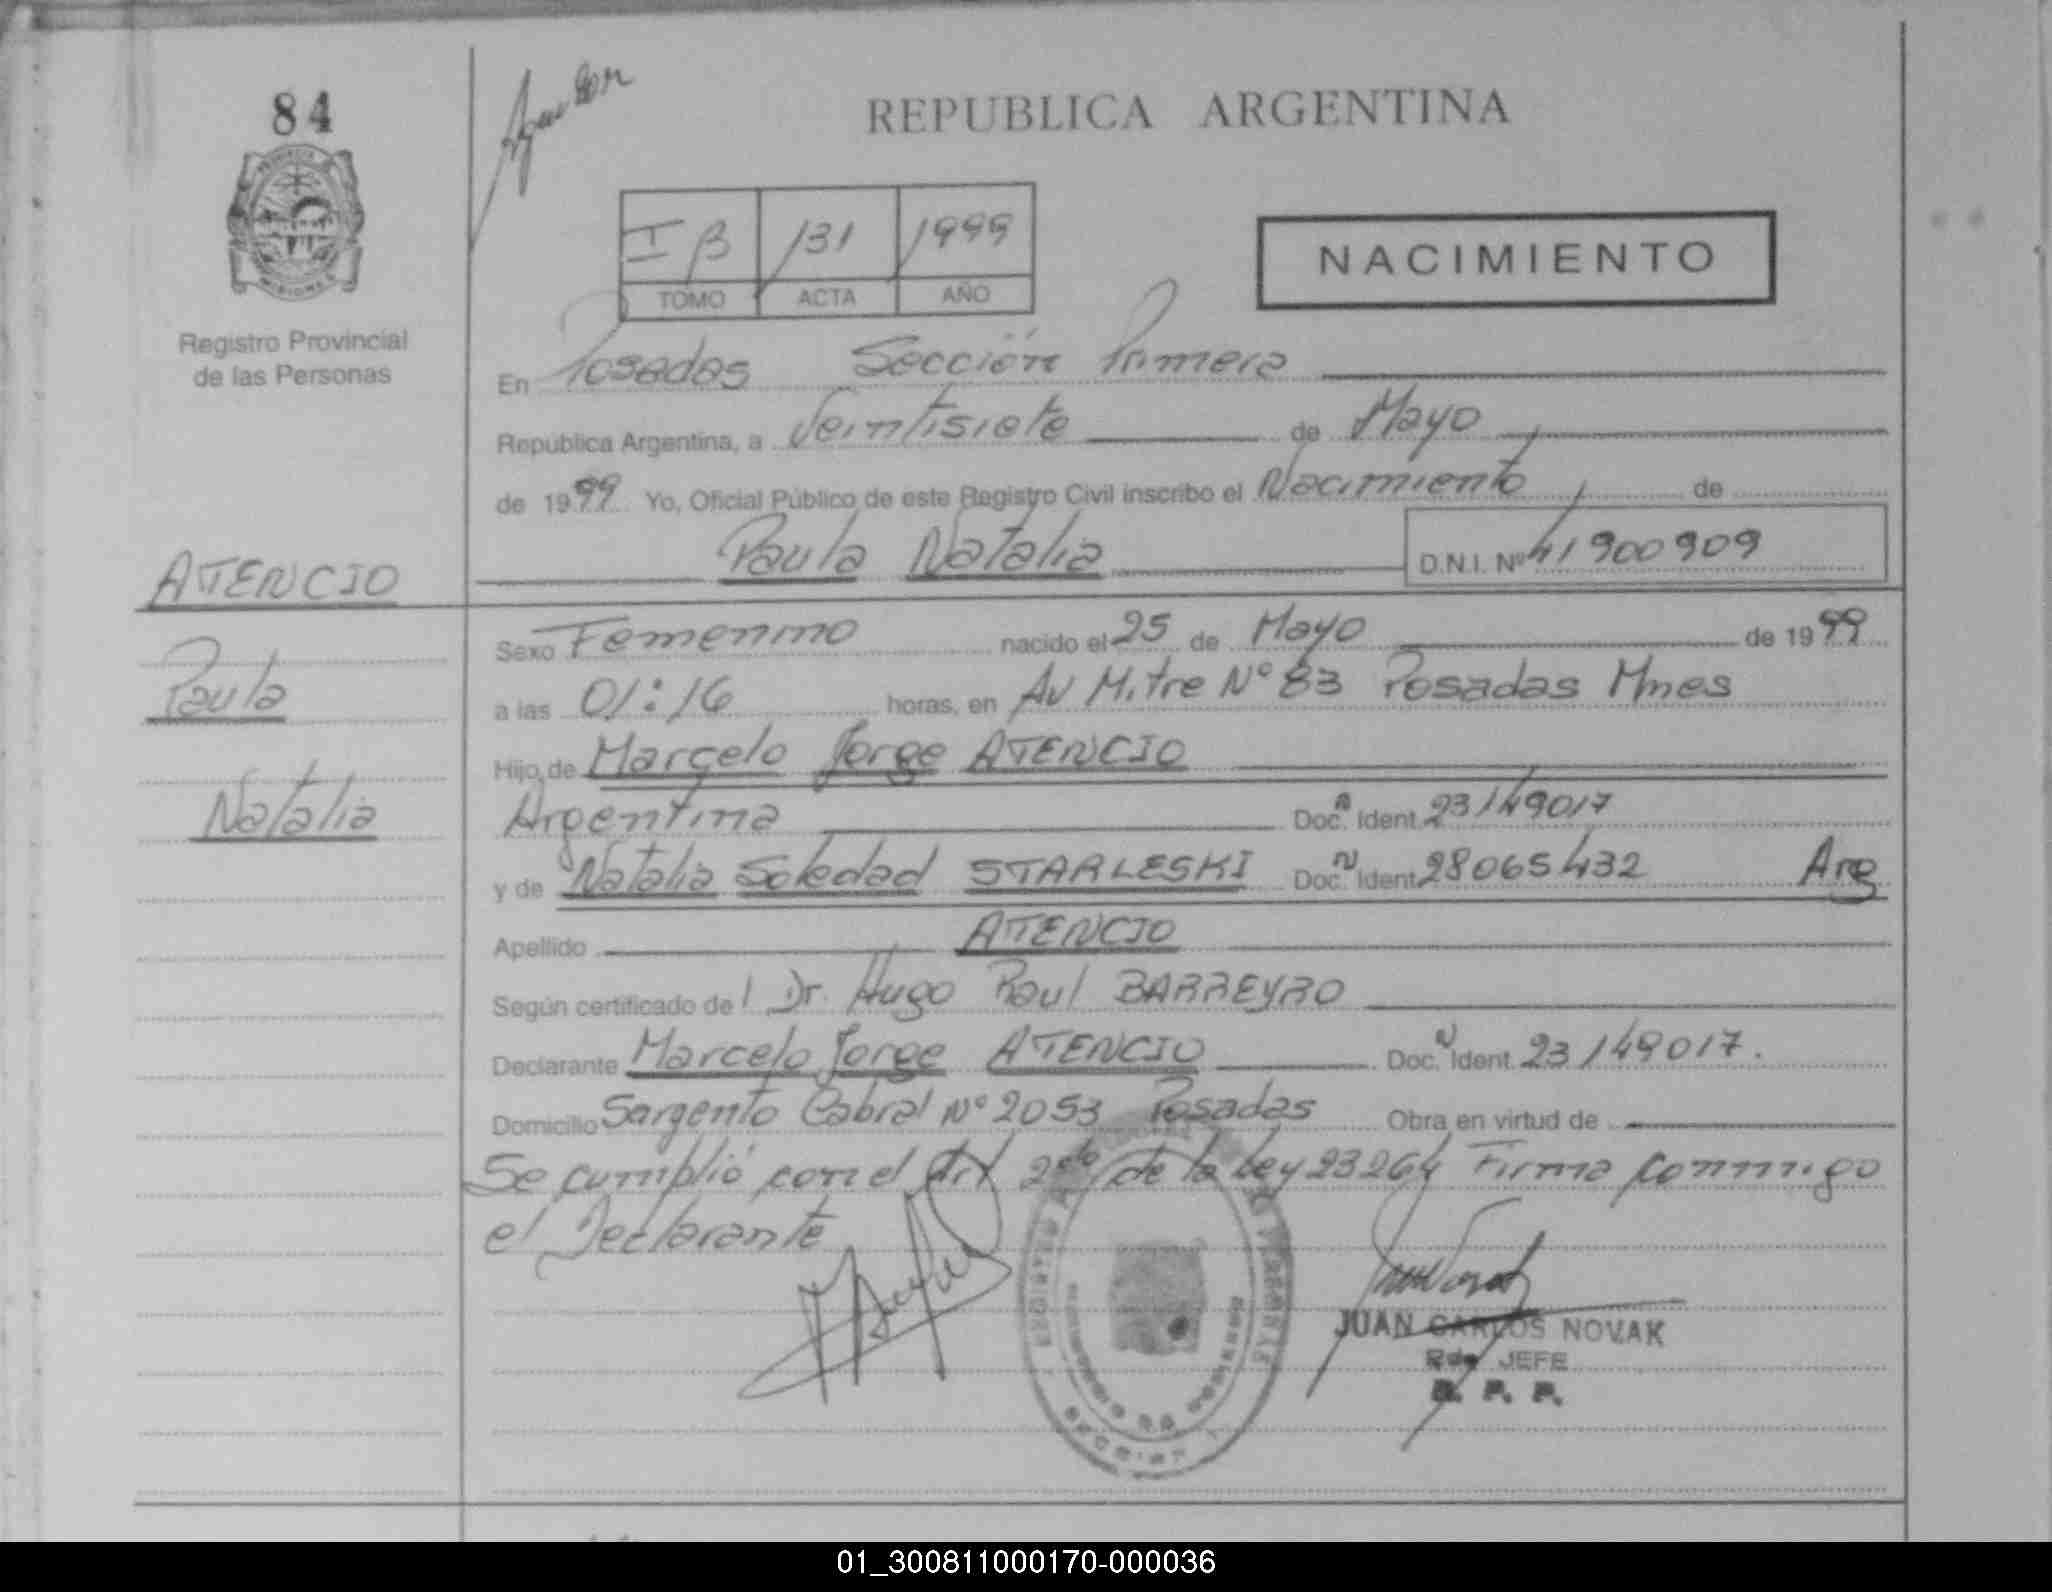 84
REPUBLICA ARGENTINA
I B 131 1999
TOMO ACTA AÑO
NACIMIENTO
PROVINCIA DE
MISIONES
Registro Provincial
de las Personas
En Posadas Sección Primera
República Argentina, a Veintisiete de Mayo
de 1999 Yo, Oficial Público de este Registro Civil inscribo el Nacimiento de
Paula Natalia D.N.I. Nº 41900909
ATENCIO
Paula
Natalia
Sexo Femenino nacido el 25 de Mayo de 1999
a las 01:16 horas, en Av Mitre Nº 83 Posadas Mnes
Hijo de Marcelo Jorge ATENCIO
Argentina Doc. Ident. 23149017
y de Natalia Soledad STARLESKI Doc. Ident. 28065432 Arg
Apellido ATENCIO
Según certificado del Dr. Hugo Raul BARREYRO
Declarante Marcelo Jorge ATENCIO Doc. Ident. 23149017.
Domicilio Sargento Cabral Nº 2053 Posadas Obra en virtud de
Se cumplió con el Art 2do de la Ley 23264 Firma conmigo
el Declarante
JUAN CARLOS NOVAK
JEFE
R. P. P.
01_300811000170-000036